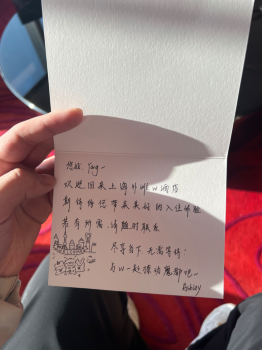 您好, Tang~
欢迎回来上海外滩W酒店
期待给您带来美好的入住体验
若有所需, 请随时联系
尽享当下, 无需等待!
与W一起撩动魔都吧~
Ashley